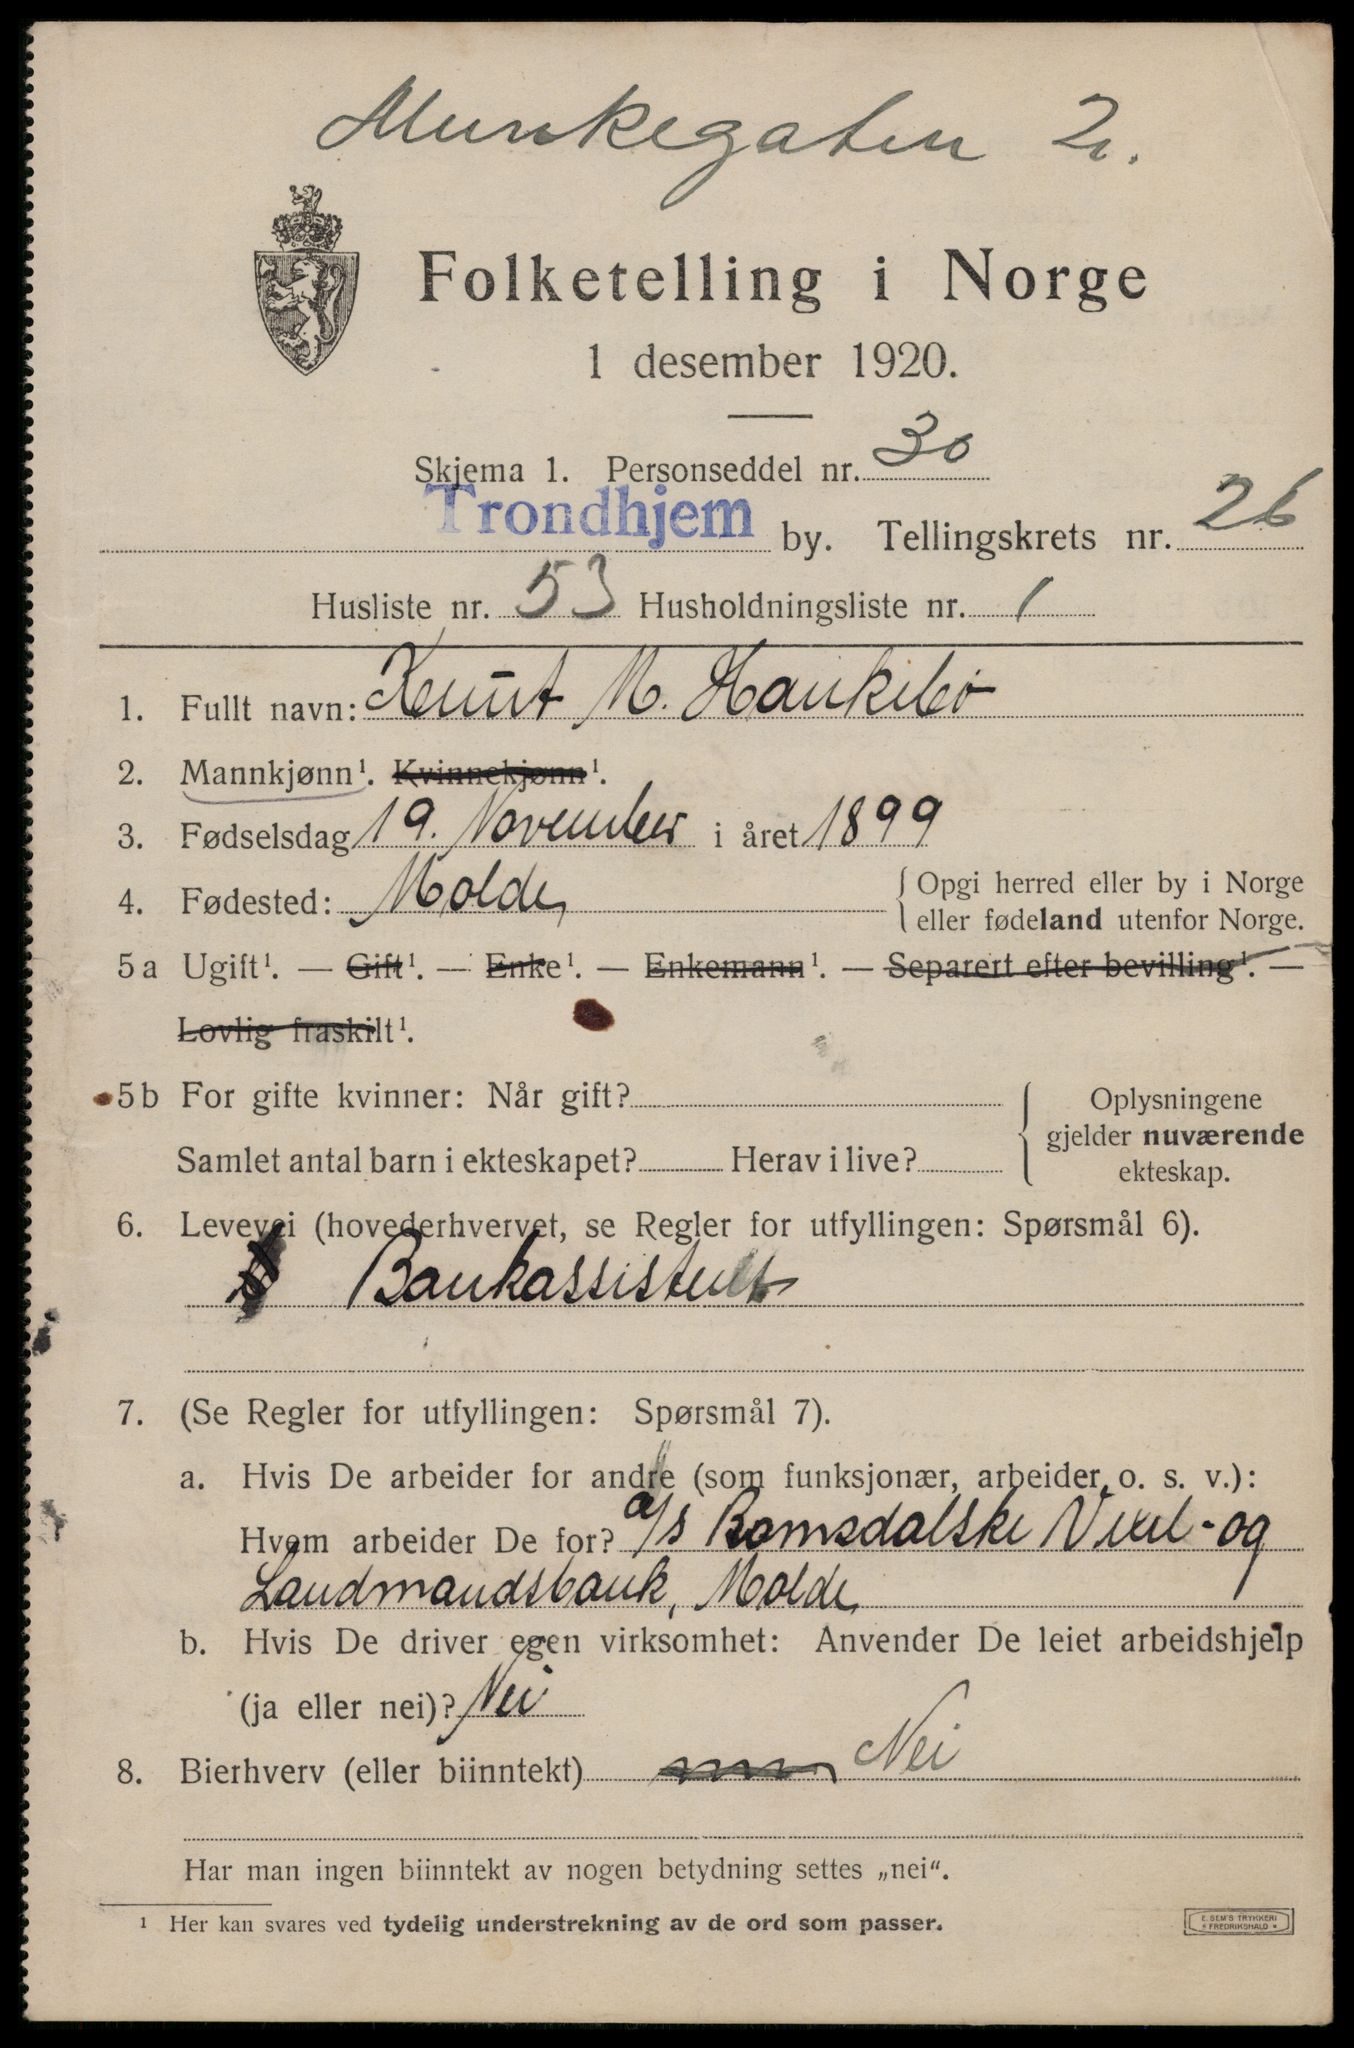 Munkegaten 2.
Folketelling i Norge
1 desember 1920.
Skjema 1. Personseddel nr. 30
Trondhjem by. Tellingskrets nr. 26
Husliste nr. 53 Husholdningsliste nr. 1
1. Fullt navn: Knut M. Haukebø
2. Mannkjønn¹. Kvinnekjønn¹.
3. Fødselsdag 19. November i året 1899
4. Fødested: Molde, { Opgi herred eller by i Norge
eller fødeland utenfor Norge.
5 a Ugift¹. — Gift¹. — Enke¹. — Enkemann¹. — Separert efter bevilling¹. —
Lovlig fraskilt¹.
5 b For gifte kvinner: Når gift? { Oplysningene
gjelder nuværende
Samlet antal barn i ekteskapet? Herav i live?
ekteskap.
6. Levevei (hovederhvervet, se Regler for utfyllingen: Spørsmål 6).
Bankassistent
7. (Se Regler for utfyllingen: Spørsmål 7).
a. Hvis De arbeider for andre (som funksjonær, arbeider o. s. v.):
Hvem arbeider De for? a/s Romsdalske Vexel- og
Landmandsbank, Molde,
b. Hvis De driver egen virksomhet: Anvender De leiet arbeidshjelp
(ja eller nei)? Nei
8. Bierhverv (eller biinntekt) Nei
Har man ingen biinntekt av nogen betydning settes „nei“.
¹ Her kan svares ved tydelig understrekning av de ord som passer.
E. SEM'S TRYKKERI
* FREDRIKSHALD *